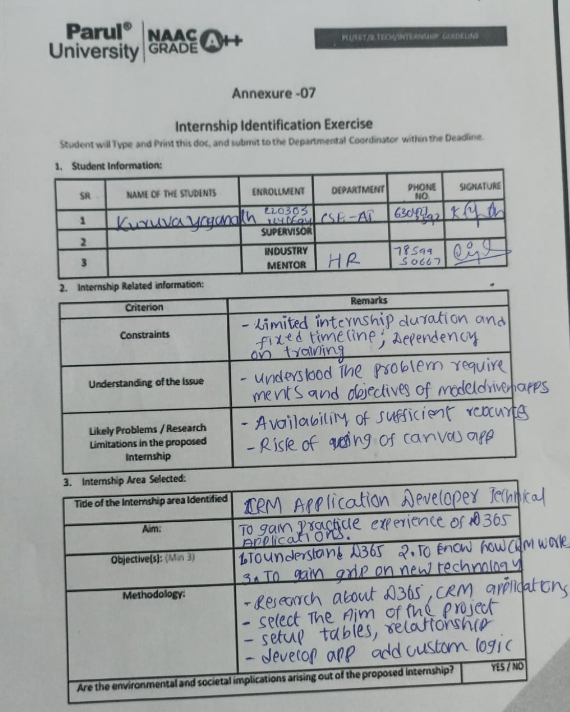 Parul® University
NAAC GRADE A++
PU/SET/B.TECH/INTERNSHIP GUIDELINE
Annexure -07
Internship Identification Exercise
Student will Type and Print this doc, and submit to the Departmental Coordinator within the Deadline.
1. Student Information:
SR NAME OF THE STUDENTS ENROLLMENT DEPARTMENT PHONE NO. SIGNATURE
1 Kuruva 220303 CSE-AI
2 SUPERVISOR
3 INDUSTRY MENTOR HR 78599 50667
2. Internship Related information:
Criterion Remarks
Constraints
- Limited internship duration and
fixed timeline; Dependency
on training
Understanding of the Issue
- understood The problem require
ments and objectives of modeldriven apps
Likely Problems / Research
Limitations in the proposed
Internship
- Availability of sufficient
- Risk of of canvas app
3. Internship Area Selected:
Title of the Internship area Identified CRM Application Developer Technical
Aim: To gain practicle experience of D365
Applications.
Objective(s): (Min 3) 1. To understand D365 2. To know how CRM work
3. To gain grip on new technology
Methodology:
- Research about D365, CRM applications
- select The Aim of the project
- setup tables, relationship
- develop app add custom logic
Are the environmental and societal implications arising out of the proposed Internship? YES / NO